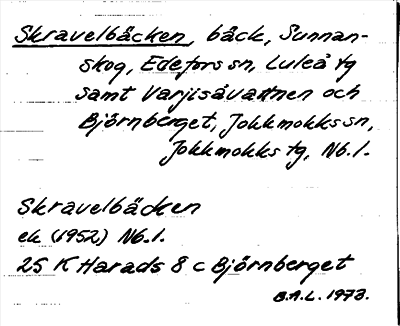 Skravelbäcken, bäck, Sunnan-
skog, Edefors sn, Luleå tg
samt Varjisåvattnen och
Björnberget, Jokkmokks sn,
Jokkmokks tg, Nb.l.
Skravelbäcken
ek (1952) Nb.l.
25 K Harads 8 c Björnberget
B.A.L. 1973.